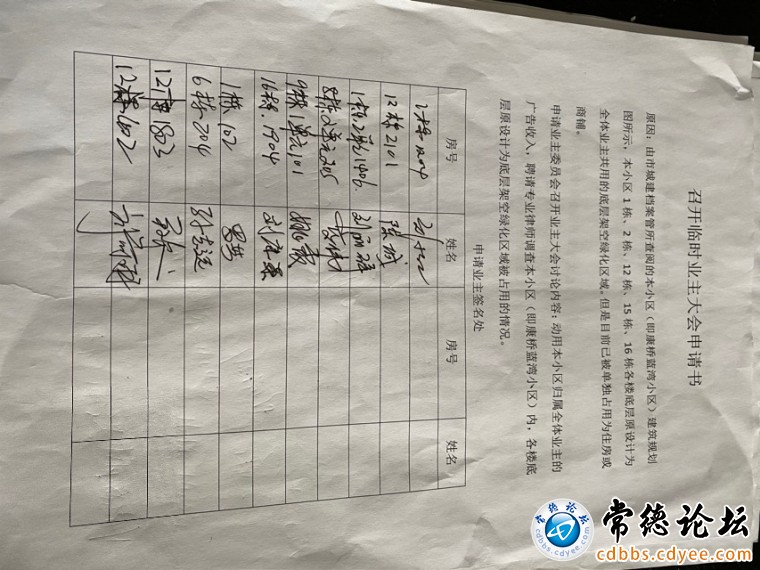 召开临时业主大会申请书
原因：由市城建档案管所查阅的本小区（即康桥蓝湾小区）建筑规划
图所示，本小区1栋、2栋、12栋、15栋、16栋各楼底层原设计为
全体业主共用的底层架空绿化区域。但是目前已被单独占用为住房或
商铺。
申请业主委员会召开业主大会讨论内容：动用本小区归属全体业主的
广告收入，聘请专业律师调查本小区（即康桥蓝湾小区）内，各楼底
层原设计为底层架空绿化区域被占用的情况。
申请业主签名处
房号 姓名 房号 姓名
12栋2101 陈
1栋2单元1406
8栋2单元205
9栋1单元101
16栋.1904
1栋102
6栋204
1803
12栋602
常德论坛
cdbbs.cdyee.com